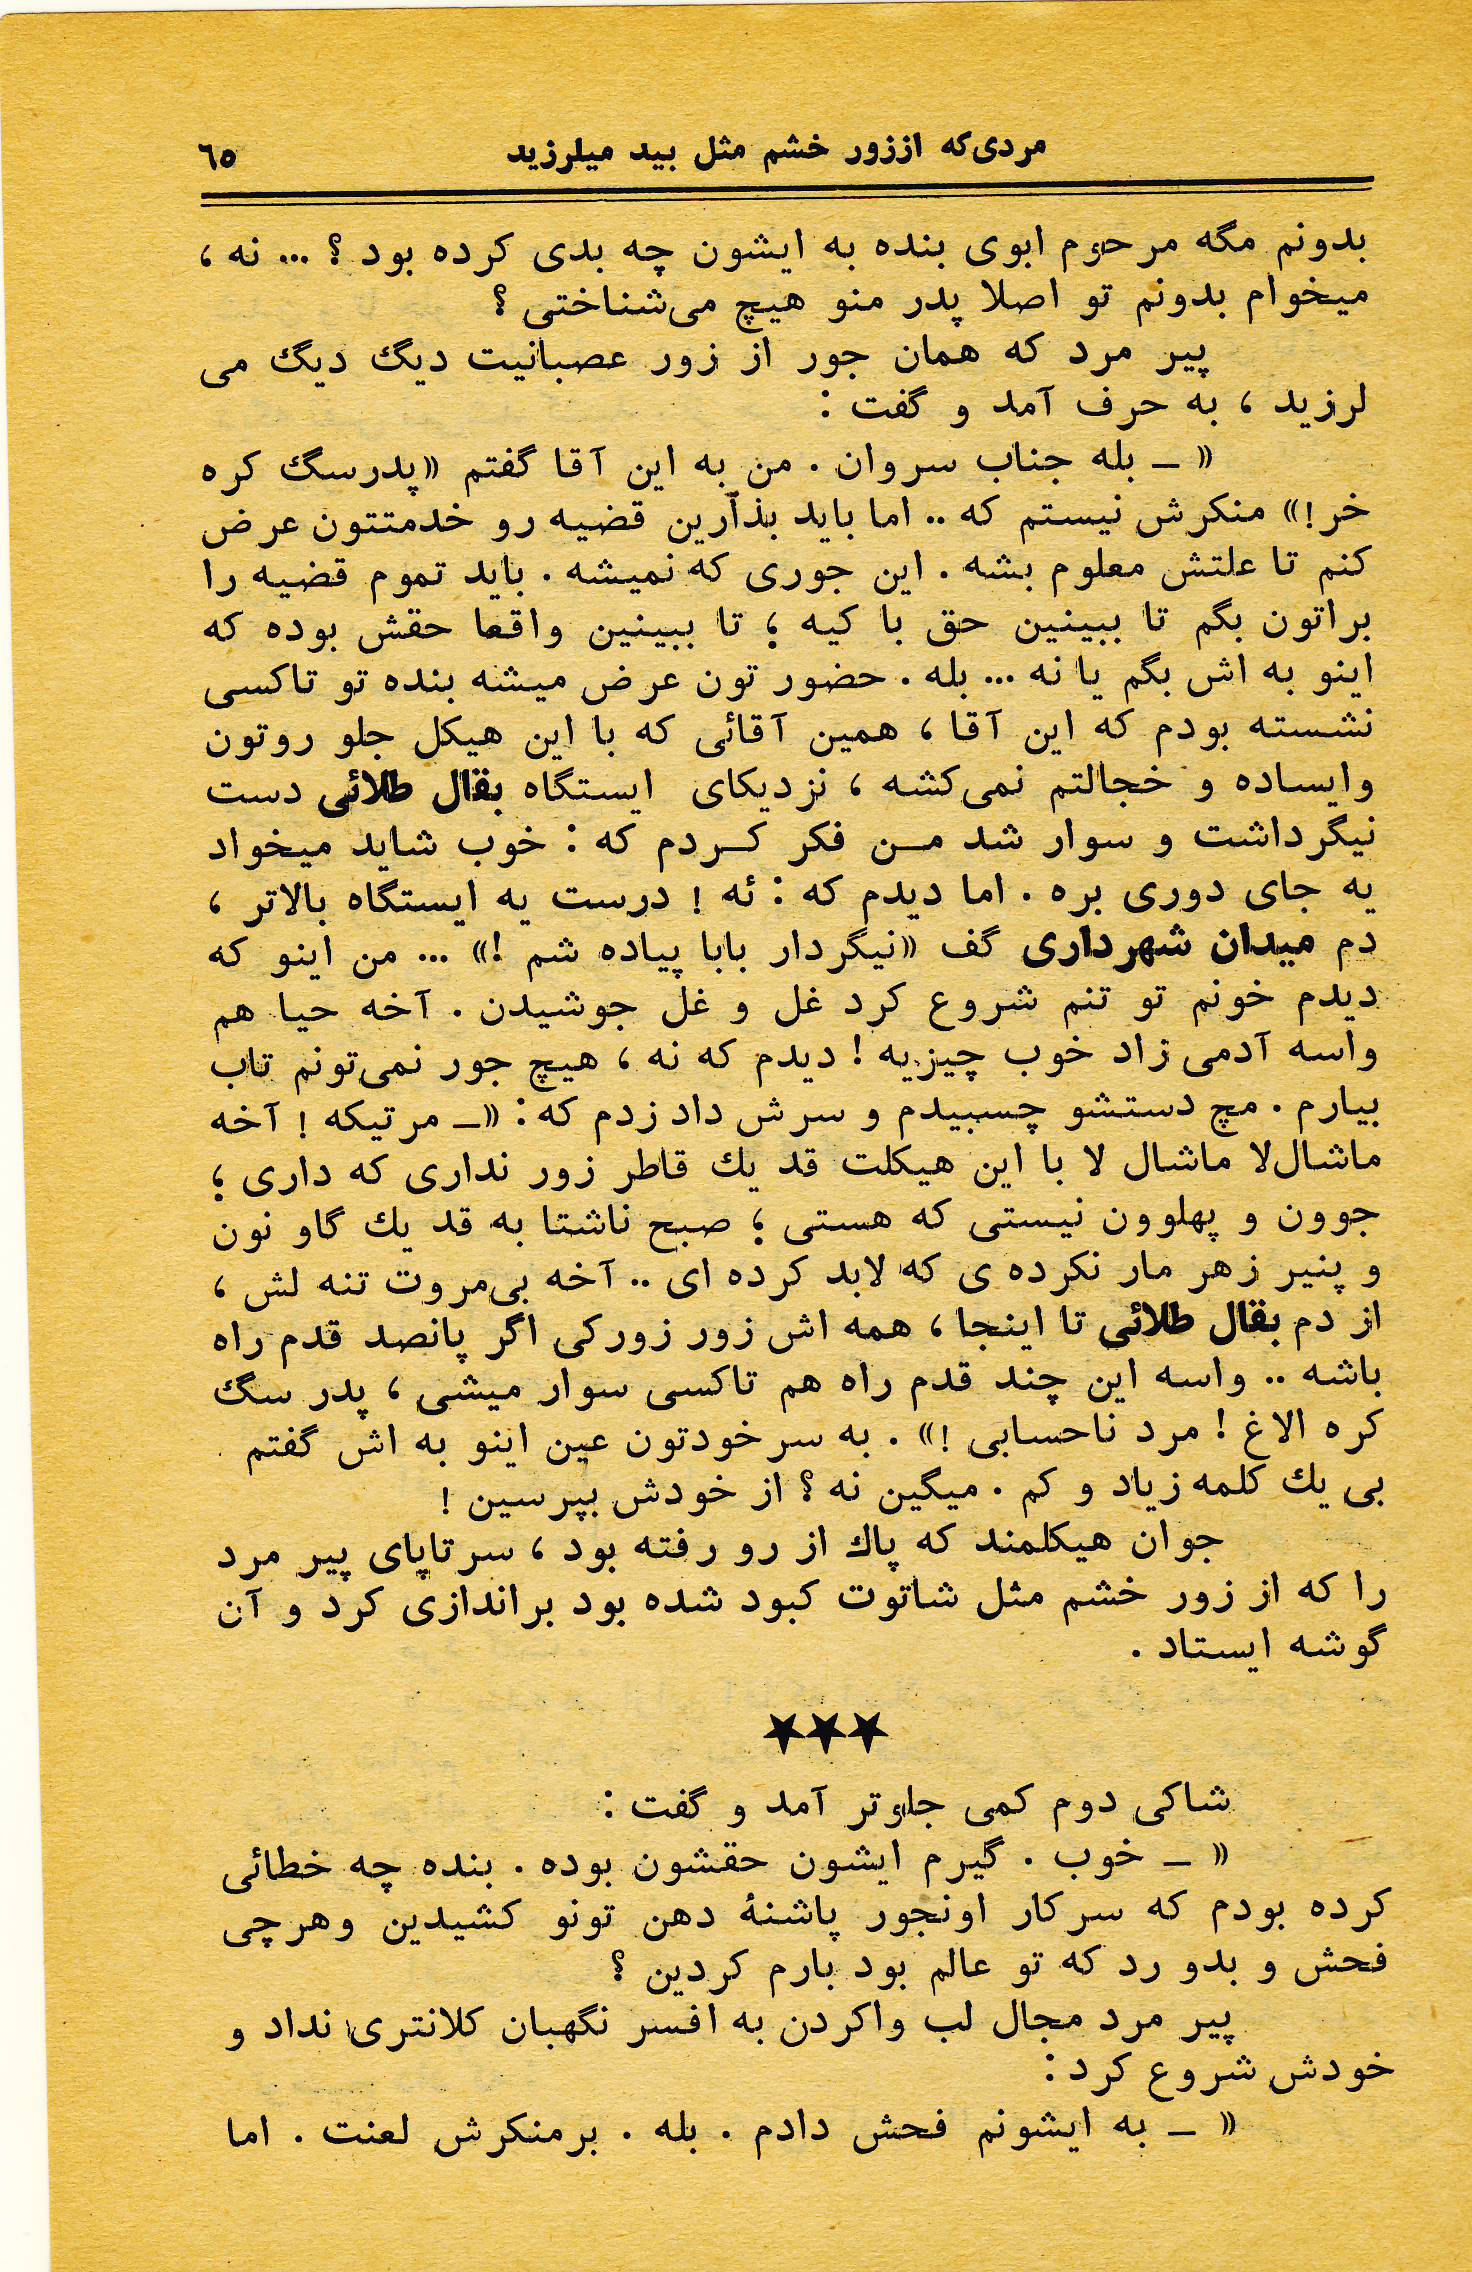 مردی‌که اززور خشم مثل بید میلرزید ٦٥
بدونم مگه مرحوم ابوی بنده به ایشون چه بدی کرده بود ؟ ... نه ،
میخوام بدونم تو اصلا پدر منو هیچ می‌شناختی ؟
پیر مرد که همان جور از زور عصبانیت دیگ دیگ می
لرزید ، به حرف آمد و گفت :
« ــ بله جناب سروان . من به این آقا گفتم «پدرسگ کره
خر!» منکرش نیستم که .. اما باید بذآرین قضیه رو خدمتتون عرض
کنم تا علتش معلوم بشه . این جوری که نمیشه . باید تموم قضیه را
براتون بگم تا ببینین حق با کیه ؛ تا ببینین واقعا حقش بوده که
اینو به اش بگم یا نه ... بله . حضور تون عرض میشه بنده تو تاکسی
نشسته بودم که این آقا ، همین آقائی که با این هیکل جلو روتون
وایساده و خجالتم نمی‌کشه ، نزدیکای ایستگاه بقال طلائی دست
نیگرداشت و سوار شد مـن فکر کـردم که : خوب شاید میخواد
یه جای دوری بره . اما دیدم که : ئه ! درست یه ایستگاه بالاتر ،
دم میدان شهرداری گف «نیگردار بابا پیاده شم !» ... من اینو که
دیدم خونم تو تنم شروع کرد غل و غل جوشیدن . آخه حیا هم
واسه آدمی زاد خوب چیزیه ! دیدم که نه ، هیچ جور نمی‌تونم تاب
بیارم . مچ دستشو چسبیدم و سرش داد زدم که : «ــ مرتیکه ! آخه
ماشال‌لا ماشال لا با این هیکلت قد یك قاطر زور نداری که داری ؛
جوون و پهلوون نیستی که هستی ؛ صبح ناشتا به قد یك گاو نون
و پنیر زهر مار نکرده ی که لابد کرده ای .. آخه بی‌مروت تنه لش ،
از دم بقال طلائی تا اینجا ، همه اش زور زورکی اگر پانصد قدم راه
باشه .. واسه این چند قدم راه هم تاکسی سوار میشی ، پدر سگ
کره الاغ ! مرد ناحسابی !» . به سرخودتون عین اینو به اش گفتم
بی یك کلمه زیاد و کم . میگین نه ؟ از خودش بپرسین !
جوان هیکلمند که پاك از رو رفته بود ، سرتاپای پیر مرد
را که از زور خشم مثل شاتوت کبود شده بود براندازی کرد و آن
گوشه ایستاد .
★★★
شاکی دوم کمی جلوتر آمد و گفت :
« ــ خوب . گیرم ایشون حقشون بوده . بنده چه خطائی
کرده بودم که سرکار اونجور پاشنهٔ دهن تونو کشیدین وهرچی
فحش و بدو رد که تو عالم بود بارم کردین ؟
پیر مرد مجال لب واکردن به افسر نگهبان کلانتری نداد و
خودش شروع کرد :
« ــ به ایشونم فحش دادم . بله . برمنکرش لعنت . اما